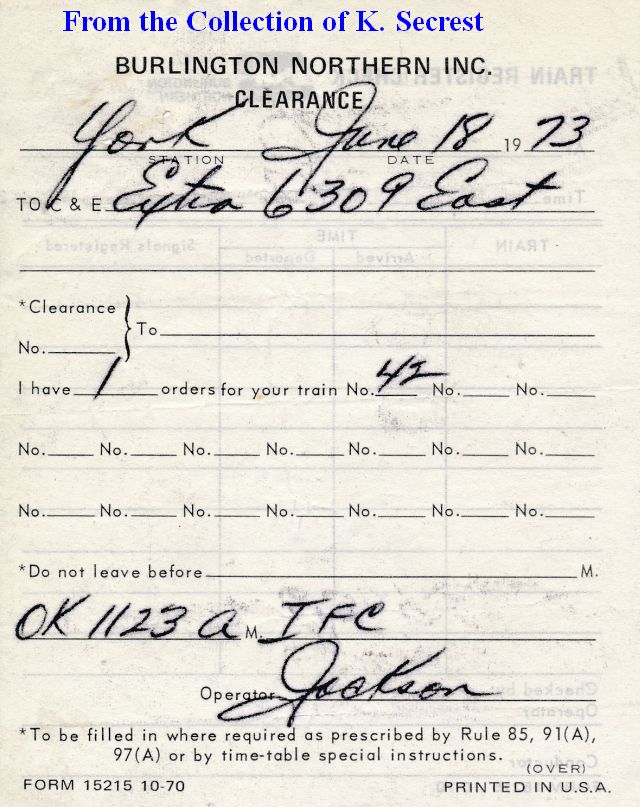 From the Collection of K. Secrest
BURLINGTON NORTHERN INC.
CLEARANCE
York June 18 1973
STATION DATE
TO C & E Extra 6309 East
*Clearance
No. To
I have 1 orders for your train No. 42 No. No.
No. No. No. No. No. No. No.
No. No. No. No. No. No. No.
*Do not leave before M.
OK 1123 a M. IFC
Operator Jackson
*To be filled in where required as prescribed by Rule 85, 91(A),
97(A) or by time-table special instructions.
(OVER)
FORM 15215 10-70 PRINTED IN U.S.A.